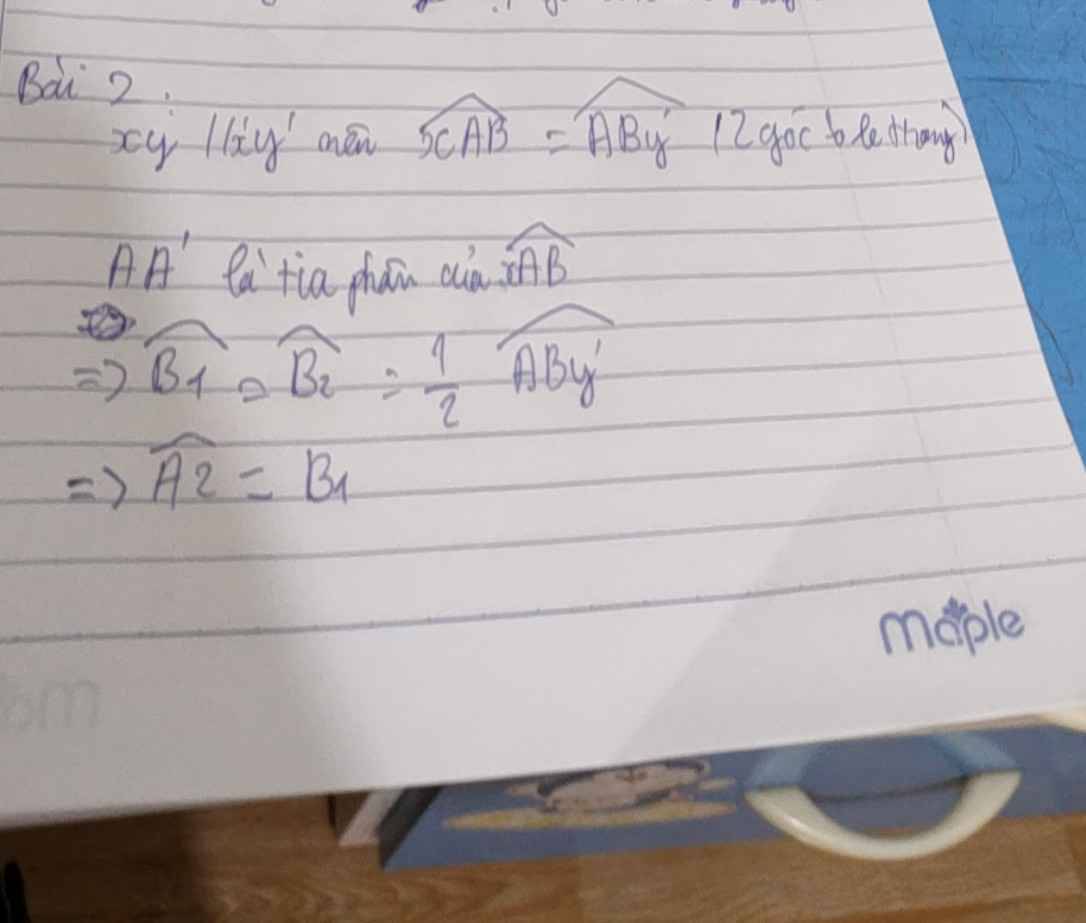 Bài 2.
xy // x'y' nên xAB = ABy' (2 góc so le trong)
AA' là tia phân của xAB
=> B1 = B2 = 1/2 ABy'
=> A2 = B1
maple